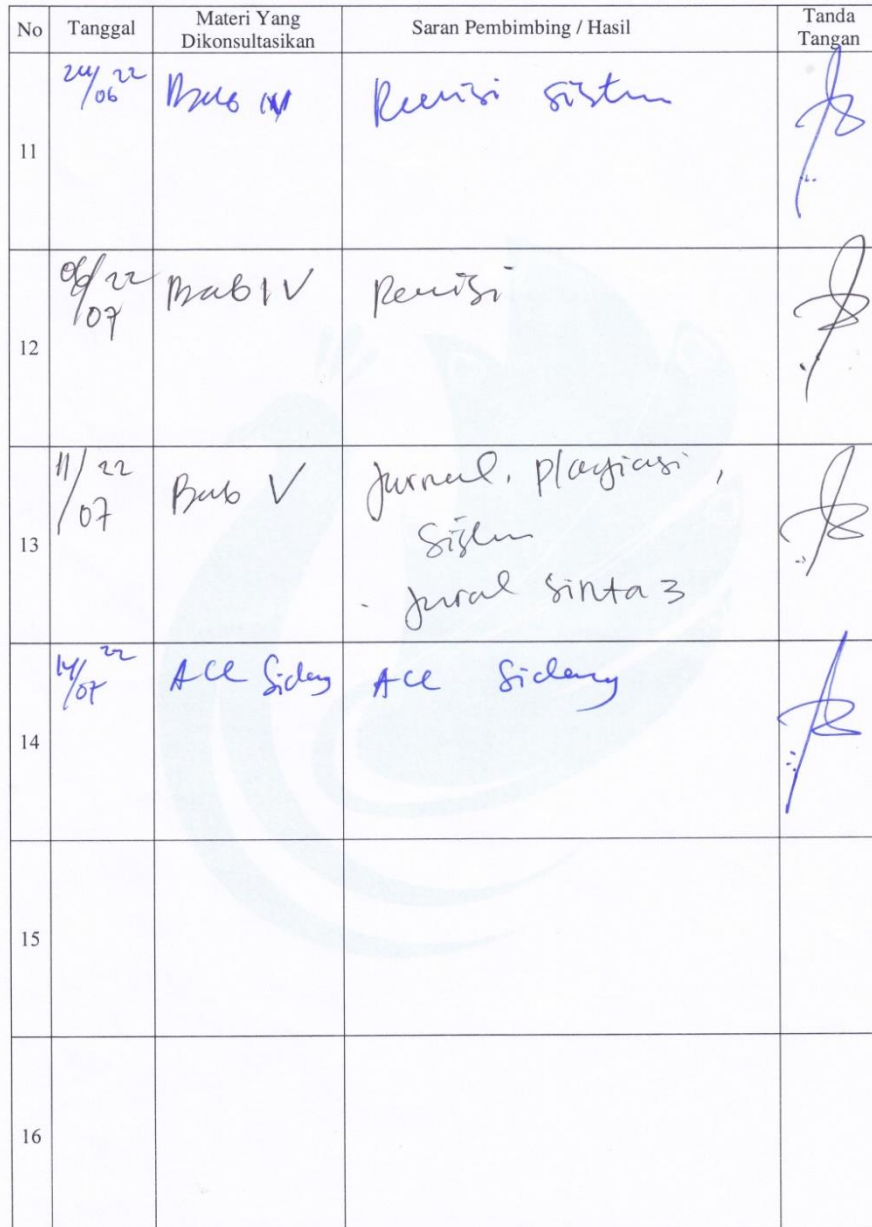 No Tanggal Materi Yang Dikonsultasikan Saran Pembimbing / Hasil Tanda Tangan
11 24/06 22 Bab IV Revisi sistem
12 06/07 22 Bab IV Revisi
13 11/07 22 Bab V Jurnal, plagiasi,
Sistem
- Jural Sinta 3
14 14/07 22 ACC Sidang ACC Sidang
15
16